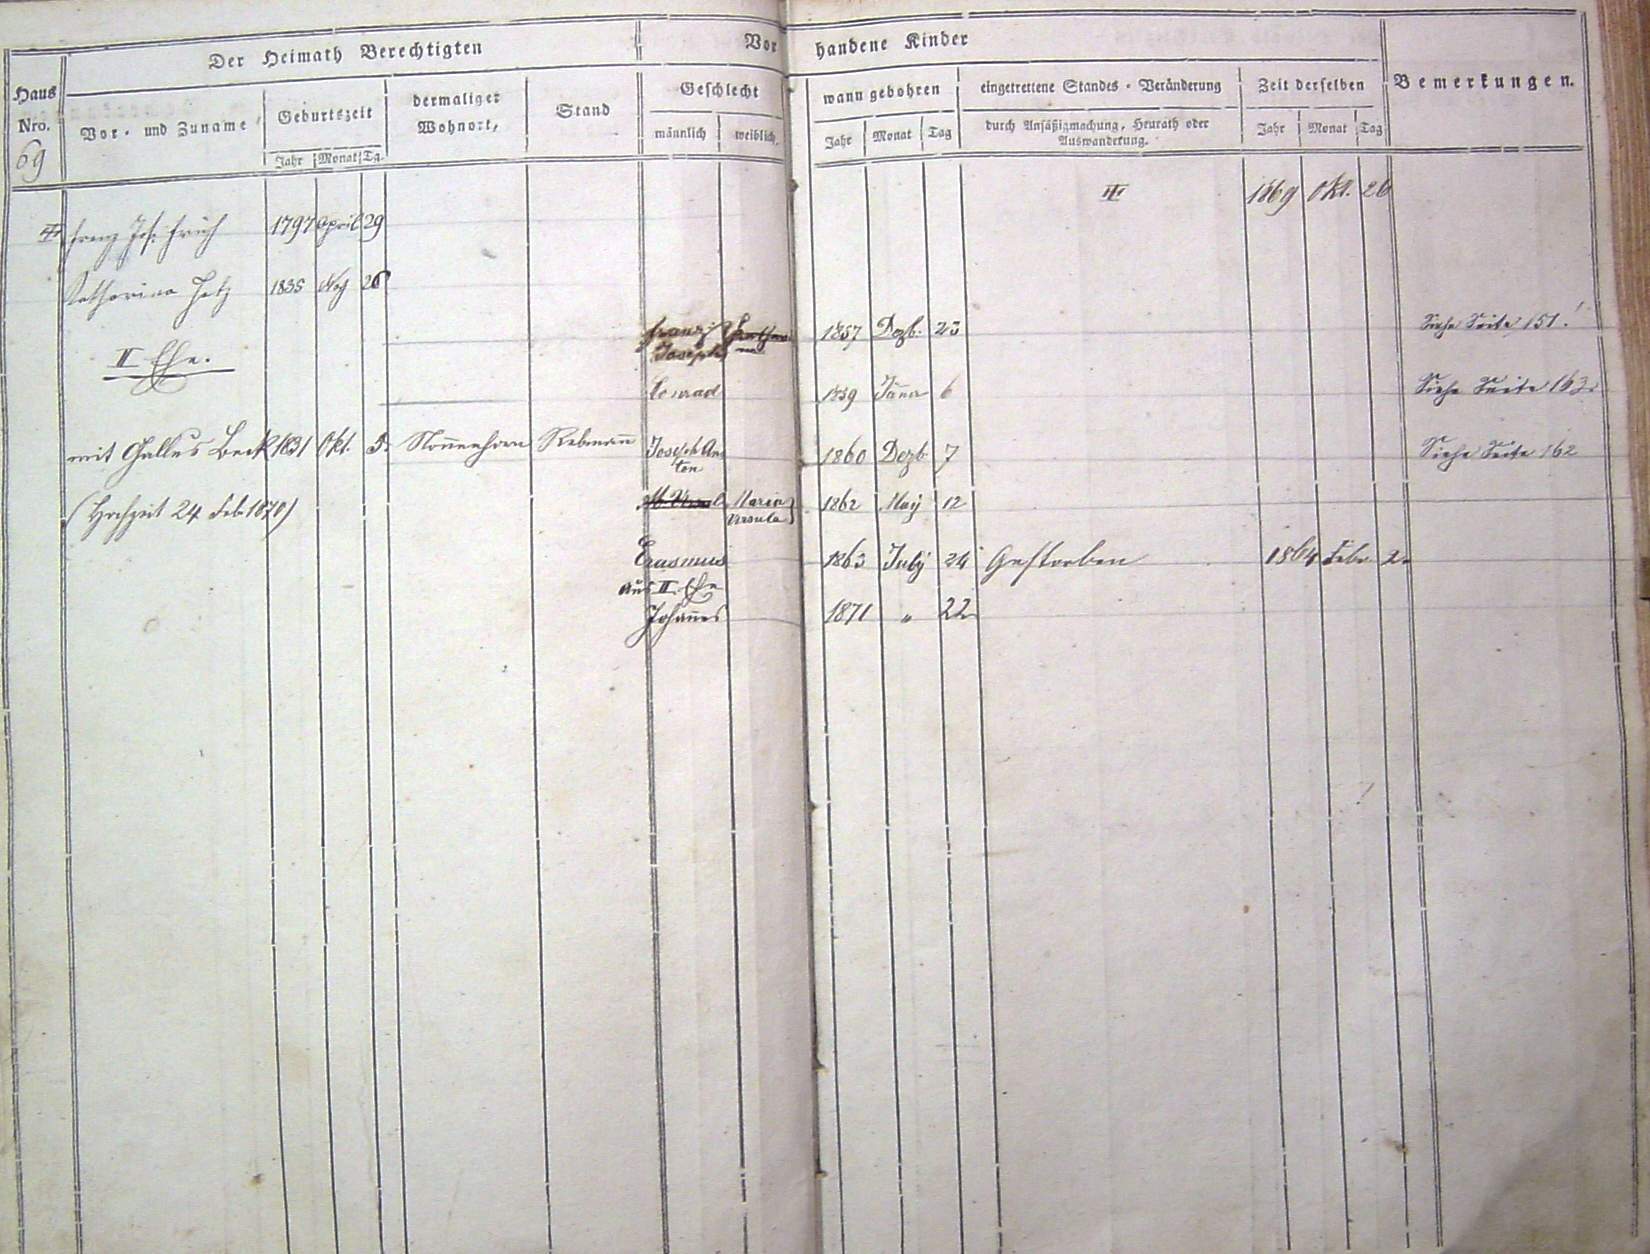 Der Heimath Berechtigten
Vorhandene Kinder
Haus Nro.
69
Vor- und Zuname
Geburtszeit
Jahr Monat Tg.
dermaliger Wohnort,
Stand
Geschlecht
männlich weiblich.
wann gebohren
Jahr Monat Tag
eingetrettene Standes-Veränderung
durch Ansäßigmachung, Heurath oder
Auswanderung.
Zeit derselben
Jahr Monat Tag
Bemerkungen.
1869 Okt. 26
Franz Jos. 1797 April 29
Katharina 1835 26
Franz Joseph 1857 Dezb. 23 Siehe Seite 151!
II Ehe.
Conrad 1859 Jäner 6 Siehe Seite 163
mit Gallus Beck 1831 Okt. 5. Nonnenhorn Rebmann Joseph Anton 1860 Dezb 7 Siehe Seite 162
(Hochzeit 24 Feb 1870)
Maria Ursula 1862 May 12
Erasmus 1863 July 24 Gestorben 1864 Febr 2.
Aus II. Ehe
Johannes 1871 " 22